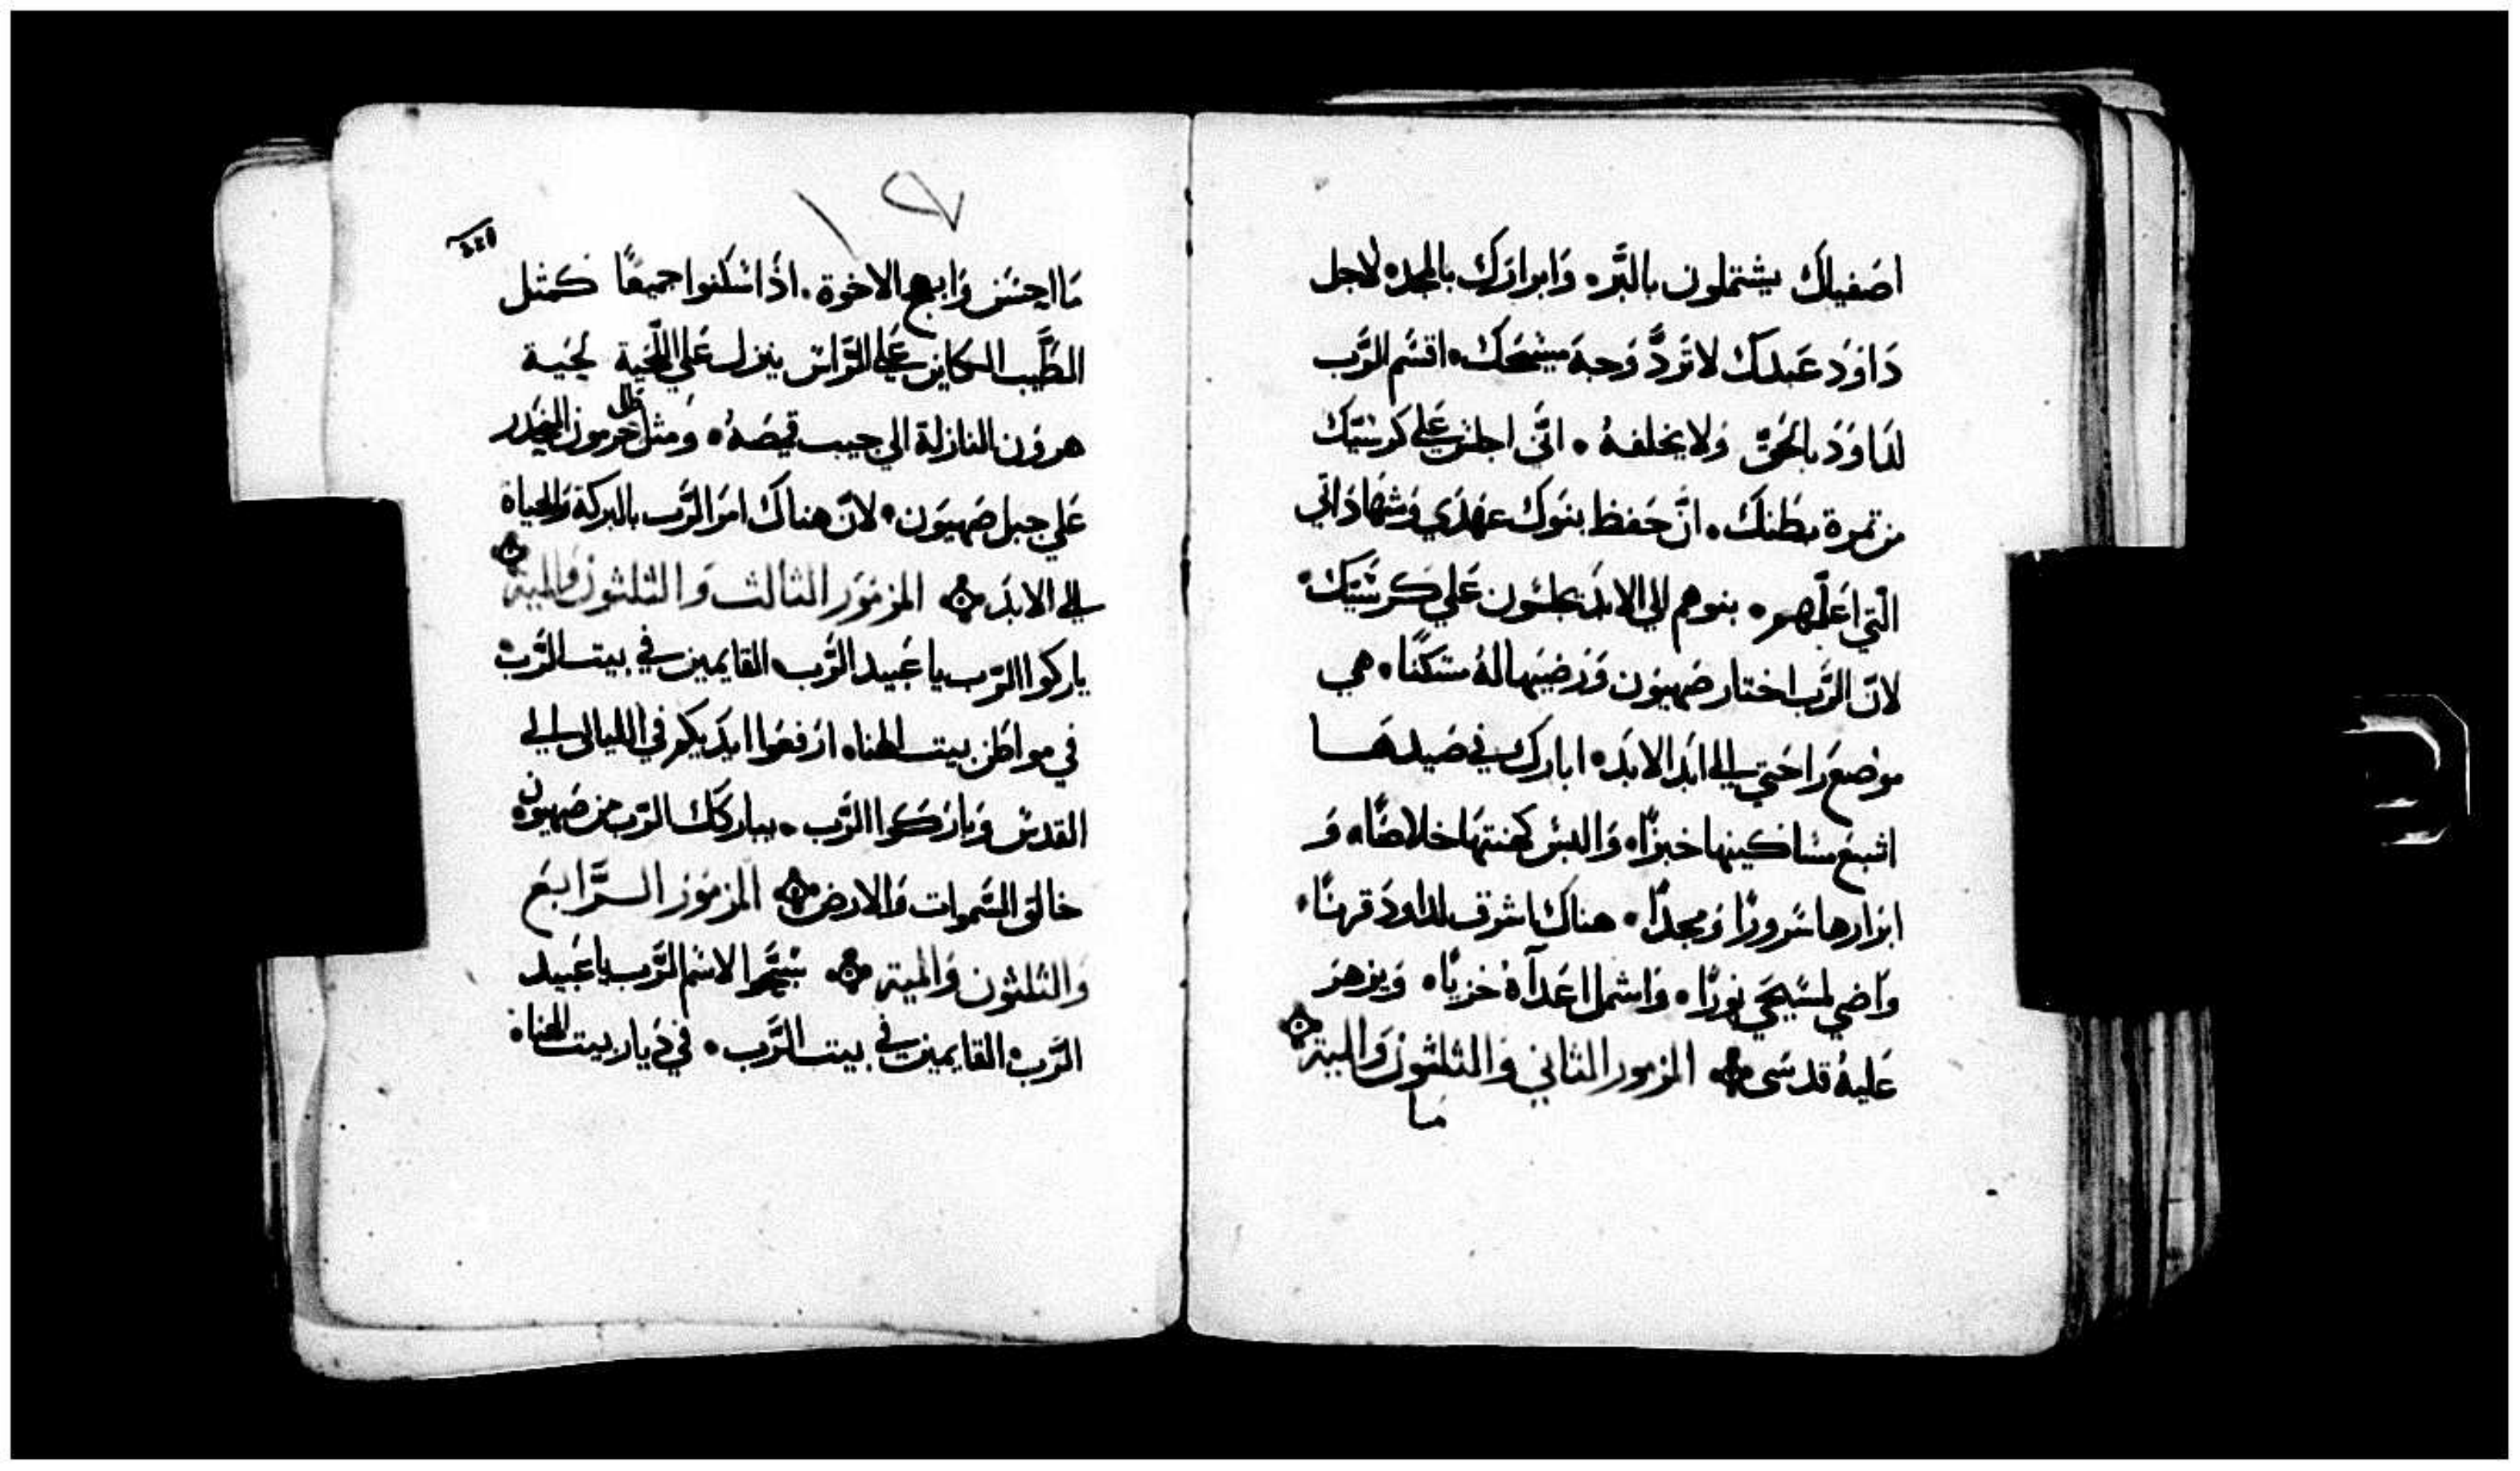 اصَفيلاك يشتملون بالبَّر ٠ وَابرارَك بالمجد ٠ لاجل
دَاوَدَ عَبدكَ لا تَردَّ وَجهَ مَسِيحَكْ ٠ اقسَم الرَّب
لدَاوَدَ بالحَقَّ وَلا يخلفهُ ٠ انَّي اجلسَ عَلي كرسَيّكَ
من تمرة بطنكَ ٠ انَّ حَفظ بنَوكَ عَهَدَي وَشَهَادَاتي
الَّتي اعَلّمهم ٠ بنوهم الي الابدَ يجلسَون عَلي كرسَيّكَ ٠
لانَّ الرَّب اختار صَهيَون وَرَضيَهَا لهُ مسَكنًا ٠ هي
موضعَ رَاحَتي الي ابَد الابَد ٠ ابارك في صَيدهَا
اشبعَ مسَاكينها خبزًا ٠ وَالبسَ كهنتهَا خلاصًا ٠ وَ
ابرَارها سَرورًا وَمجدًا ٠ هناكَ اشرق لداودَ قرنًا ٠
وَاضي لمسَيحَي نورًا ٠ وَاشمل اعَدآهُ خزيًا ٠ وَيزهرَ
عَليهُ قدسَى ۞ المزمور الثاني وَالثلثون وَالمية ۞
مَا
١٩
مَا احسَن وَابهج الاخوة ٠ اذَا سَكنوا جميعًا كمَثل
الطَّيب الكاين عَلي الرَّاس ينزل عَلي اللّحَية لحَية
هرون النازلة الي جيب قميصَهُ ٠ وَمثل طل حَرمون المنحَدر
عَلي جبل صَهيَون ٠ لانَّ هناكَ امرَ الرَّب بالبركة وَالحياة
الي الابدَ ۞ المزمَور الثالث وَالثلثون وَالمية ۞
باركوا الرَّب يا عَبيد الرَّب ٠ القايمين في بيت الرَّب
في مواطن بيت الهنا ٠ ارَفعَوا ايدَيكم في الليالي الي
القدسَ وَبارَكوا الرَّب ٠ يباركَكَ الرَّب من صَهيون ٠
خالق السَّموات وَالارض ۞ المزمَور الرَّابعَ
وَالثلثون وَالمية ۞ سَبّحَوا لاسَم الرَّب يا عَبيد
الرَّب القايمين في بيت الرَّب ٠ في دَيار بيت الهنا ٠